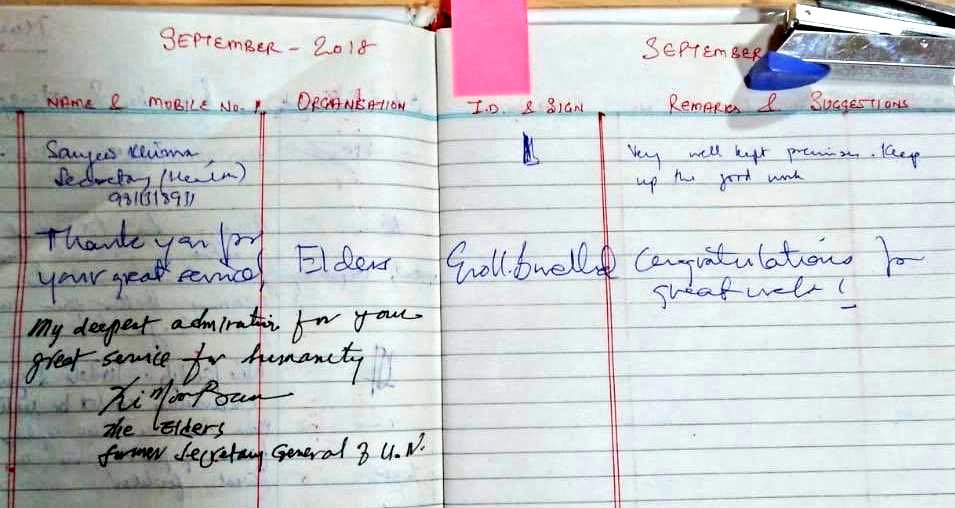 SEPTEMBER - 2018
SEPTEMBER
NAME & MOBILE NO.
ORGANISATION
I.D. & SIGN
REMARKS & SUGGESTIONS
Secretary (Health)
Very well kept premises. Keep
up the good work
Thank you for
your great service
Elders
Congratulations for
great work!
My deepest admiration for your
great service for humanity
The Elders
former Secretary General of U.N.